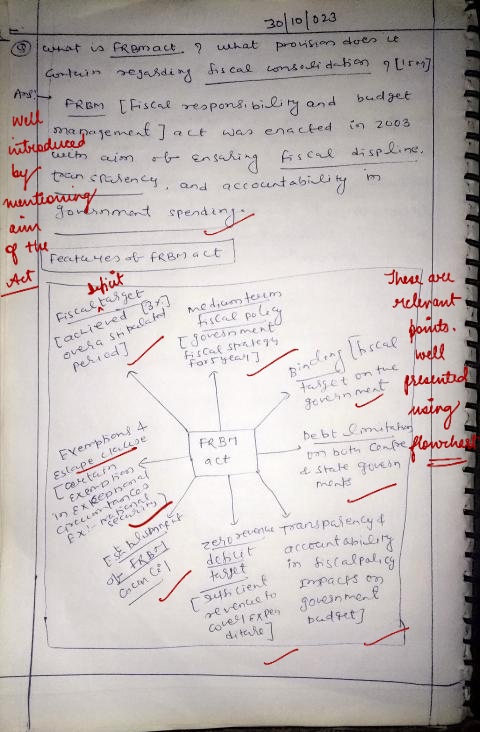 30/10/023
Q what is FRBM act ? what provision does it
contain regarding fiscal consolidation ? [15M]
Ans:- FRBM [Fiscal responsibility and budget
management] act was enacted in 2003
with aim of ensuring fiscal displine,
transparency, and accountability in
government spending.
Well
introduced
by
mentioning
aim
of the
Act
Features of FRBM act
deficit
Fiscal ^ target
[achieved [3%]
over a stipulated
period]
medium term
fiscal policy
[government
fiscal strategy
for 5 year]
Binding [fiscal
target on the
government
These are
relevant
points.
well
presented
using
flowchart
FRBM
act
Debt limitation
on both centre
& state govern
ments
Exemptions &
Escape clause
[certain
exemption
in exceptional
circumstances
Ex:- national
security]
of FRBM
council
zero revenue
deficit
target
[sufficient
revenue to
cover expen
diture]
Transparency &
accountability
in fiscal policy
impacts on
government
budget]